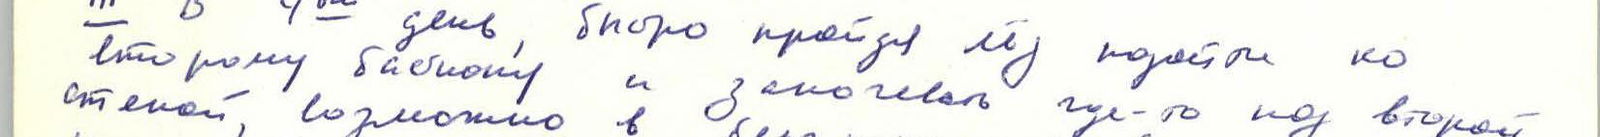 III В 4ый день, быстро пройдя лёд подойти ко
второму бастиону и заночевать где-то под второй
стеной, возможно в